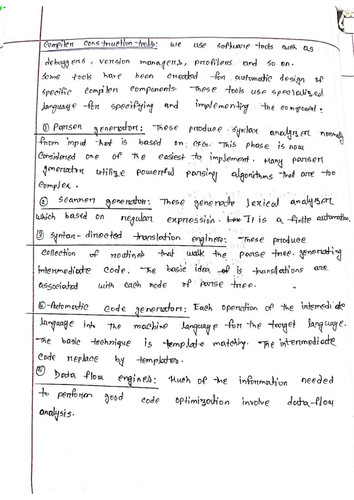 Compiler construction-tools: we use software tools such as
debuggers, version managers, profilers and so on.
Some tools have been created for automatic design of
specific compiler components. These tools use specialized
language for specifying and implementing the component.
① Parser generator: These produce syntax analyzer normally
from input that is based on CFG. This phase is now
Considered one of the easiest to implement. Many parser
generator utilize powerful parsing algorithms that are too
complex.
② Scanner generator: These generate lexical analyser
which based on regular expression. It is a finite automation
③ syntax-directed translation engines: These produce
collection of routines that walk the parse tree. generating
intermediate code. The basic idea of is translations are
associated with each node of parse tree.
Automatic code generator: Each operation of the intermediate
language into the machine language for the target language.
The basic technique is template matching. The intermediate
code replace by templates.
⑤ Data flow engines: Much of the information needed
to perform good code optimization involve data-flow
analysis.